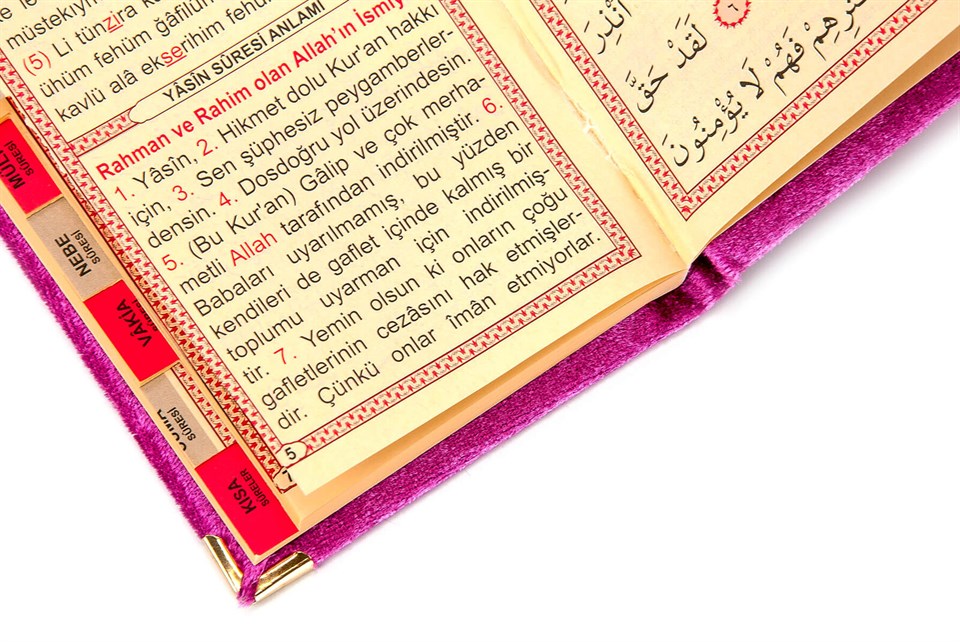 (5) Li tünzira
ühüm fehüm ğâfilûn
kavlü alâ ekserihim fehüm
YÂSÎN SÛRESİ ANLAMI
Rahman ve Rahim olan Allah'ın İsmiy
1. Yâsîn, 2. Hikmet dolu Kur'an hakkı
için, 3. Sen şüphesiz peygamberler-
densin. 4. Dosdoğru yol üzerindesin.
5. (Bu Kur'an) Gâlip ve çok merha-
metli Allah tarafından indirilmiştir. 6.
Babaları uyarılmamış, bu yüzden
kendileri de gaflet içinde kalmış bir
toplumu uyarman için indirilmiş-
tir. 7. Yemin olsun ki onların çoğu
gafletlerinin cezasını hak etmişler-
dir. Çünkü onlar îmân etmiyorlar.
5
SÛRESİ
NEBE
SÛRESİ
VÂKIA
SÛRESİ
KISA
SÛRELER
أُنْذِرَ
٦
لَقَدْ حَقَّ
فَهُمْ لَا يُؤْمِنُونَ